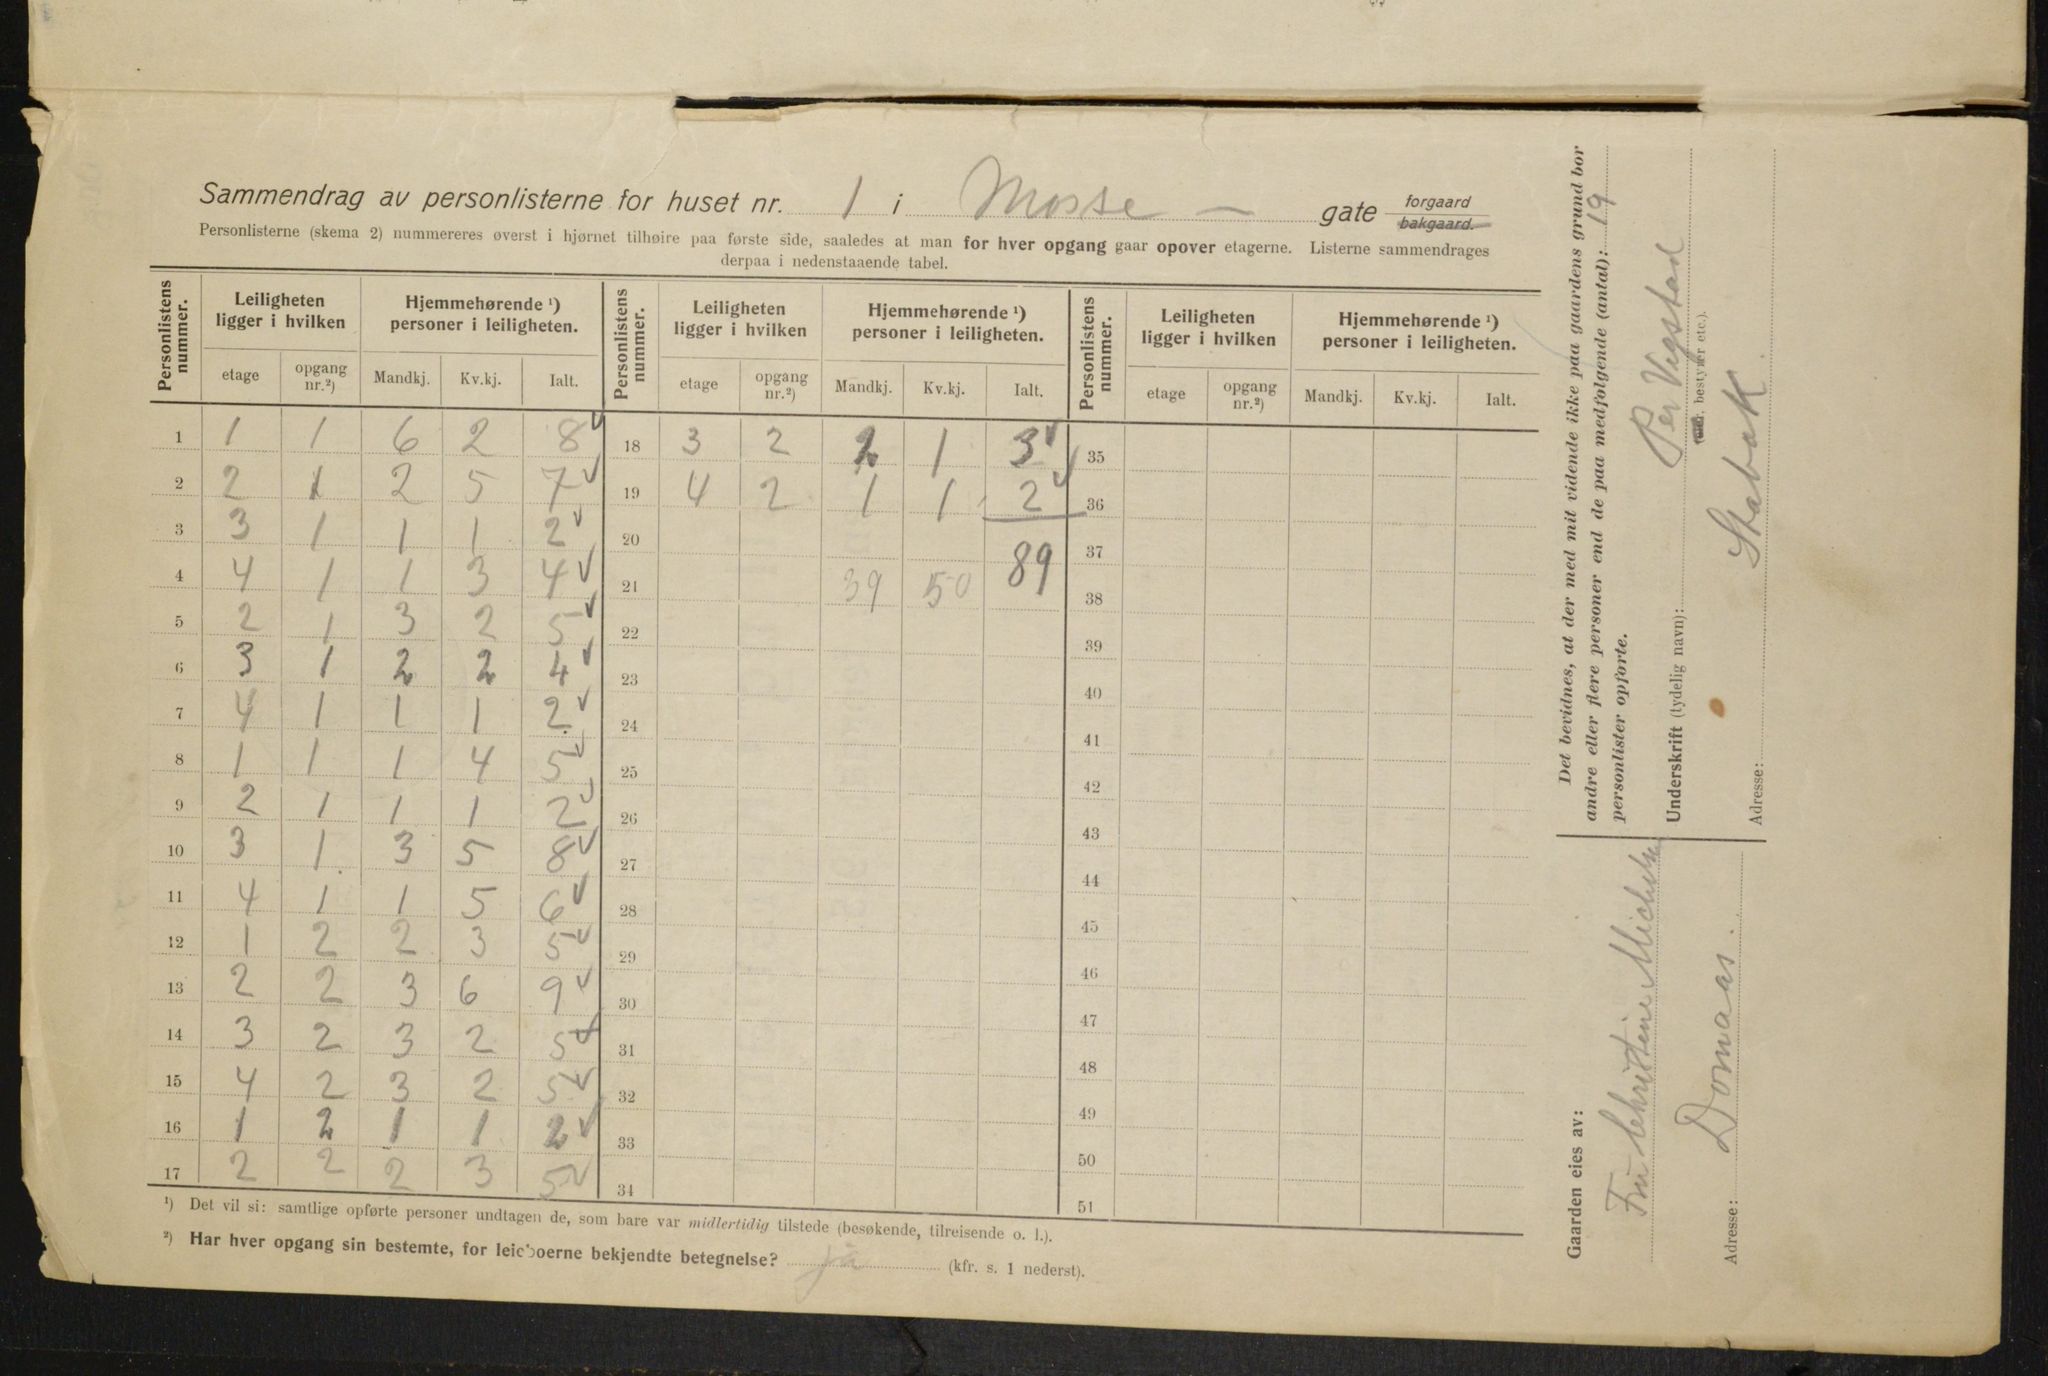 Sammendrag av personlisterne for huset nr. 1 i Mosse — gate forgaard bakgaard.
Personlisterne (skema 2) nummereres øverst i hjørnet tilhøire paa første side, saaledes at man for hver opgang gaar opover etagerne. Listerne sammendrages
derpaa i nedenstaaende tabel.
Personlistens nummer. Leiligheten ligger i hvilken Hjemmehørende ¹) personer i leiligheten. Personlistens nummer. Leiligheten ligger i hvilken Hjemmehørende ¹) personer i leiligheten. Personlistens nummer. Leiligheten ligger i hvilken Hjemmehørende ¹) personer i leiligheten.
etage opgang nr.²) Mandkj. Kv.kj. Ialt. etage opgang nr.²) Mandkj. Kv.kj. Ialt. etage opgang nr.²) Mandkj. Kv.kj. Ialt.
1 1 1 6 2 8 ✓ 18 3 2 2 1 3 ✓ 35
2 2 1 2 5 7 ✓ 19 4 2 1 1 2 ✓ 36
3 3 1 1 1 2 ✓ 20 89 37
4 4 1 1 3 4 ✓ 21 39 50 38
5 2 1 3 2 5 ✓ 22 39
6 3 1 2 2 4 ✓ 23 40
7 4 1 1 1 2 ✓ 24 41
8 1 1 1 4 5 ✓ 25 42
9 2 1 1 1 2 ✓ 26 43
10 3 1 3 5 8 ✓ 27 44
11 4 1 1 5 6 ✓ 28 45
12 1 2 2 3 5 ✓ 29 46
13 2 2 3 6 9 ✓ 30 47
14 3 2 3 2 5 ✓ 31 48
15 4 2 3 2 5 ✓ 32 49
16 1 2 1 1 2 ✓ 33 50
17 2 2 2 3 5 ✓ 34 51
¹) Det vil si: samtlige opførte personer undtagen de, som bare var midlertidig tilstede (besøkende, tilreisende o. l.).
²) Har hver opgang sin bestemte, for leieboerne bekjendte betegnelse? ja (kfr. s. 1 nederst).
Det bevidnes, at der med mit vidende ikke paa gaardens grund bor
andre eller flere personer end de paa medfølgende (antal): 19
personlister opførte.
Underskrift (tydelig navn): Per Vigstad
bestyrer etc.).
Adresse: Stabæk
Gaarden eies av:
Fru Christine Michelsen
Adresse: Domaas.